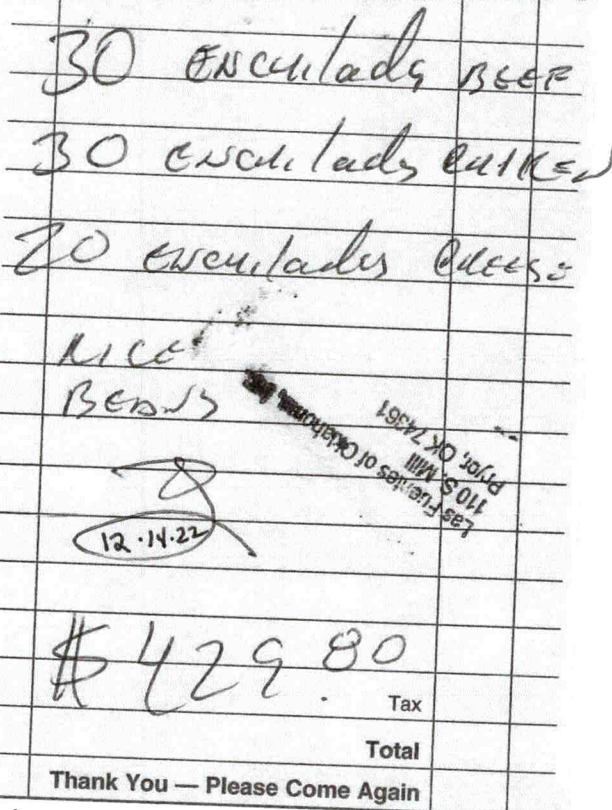 30 ENCHILADAS BEEF
30 ENCHILADAS CHIKEN
20 ENCHILADAS CHEESE
RICE
BEANS
Las Fuentes of Oklahoma, Inc.
110 S. Mill
Pryor, OK 74361
12.14.22
$ 429.80
Tax
Total
Thank You — Please Come Again